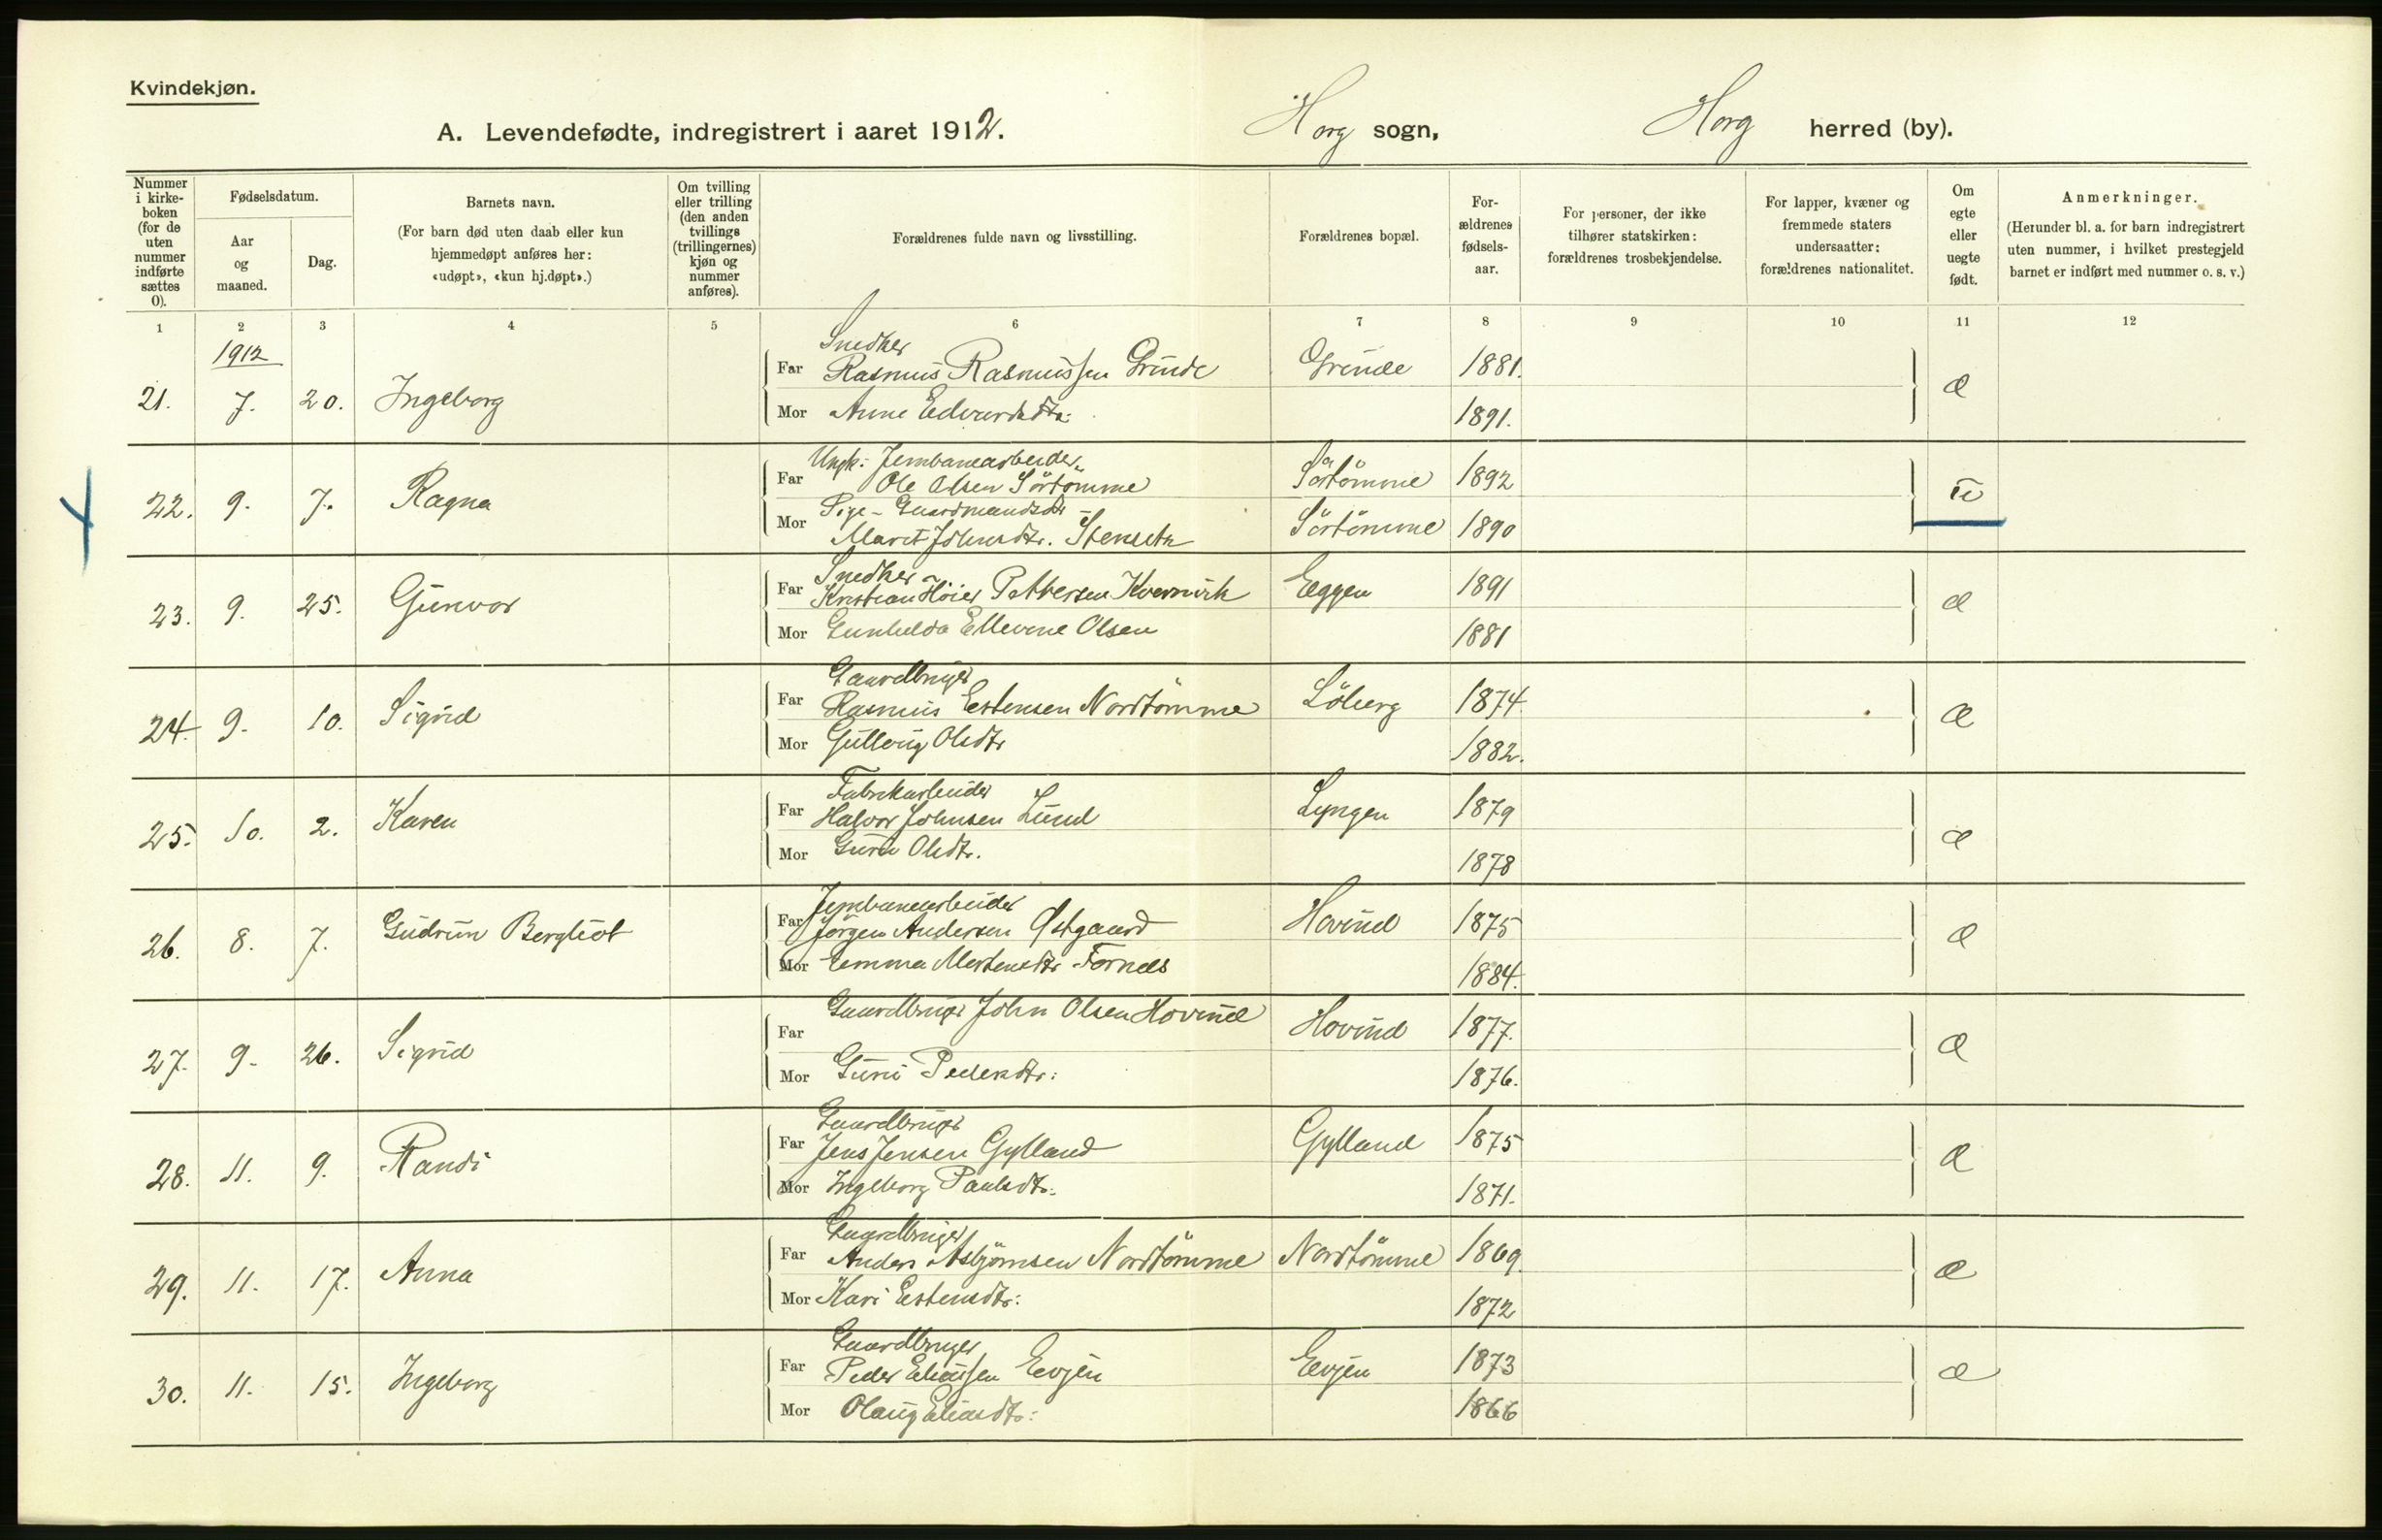 Kvindekjøn.
A. Levendefødte, indregistrert i aaret 1912. Horg sogn, Horg herred (by).
Nummer i kirke-boken (for de uten nummer indførte sættes 0).
Fødselsdatum.
Aar og maaned.
Dag.
Barnets navn.
(For barn død uten daab eller kun
hjemmedøpt anføres her:
«udøpt», «kun hj.døpt».)
Om tvilling
eller trilling
(den anden
tvillings
(trillingernes)
kjøn og
nummer
anføres).
Forældrenes fulde navn og livsstilling.
Forældrenes bopæl.
For-
ældrenes
fødsels-
aar.
For personer, der ikke
tilhører statskirken:
forældrenes trosbekjendelse.
For lapper, kvæner og
fremmede staters
undersaatter:
forældrenes nationalitet.
Om
egte
eller
uegte
født.
Anmerkninger.
(Herunder bl. a. for barn indregistrert
uten nummer, i hvilket prestegjeld
barnet er indført med nummer o. s. v.)
1 2 3 4 5 6 7 8 9 10 11 12
1912
Snedker
21. 7. 20. Ingeborg Far Rasmus Rasmussen Grinde Grinde 1881. æ
Mor Anne Edvardsdtr: 1891.
4
Ungk: Jernbanearbeider
22. 9. 7. Ragna Far Ole Olsen Sörtömme Sörtömme 1892 u
Pige - Gaardmandsdtr
Mor Marit Johnsdtr. Stenseth Sörtömme 1890
Snedker
23. 9. 25. Gunvor Far Kristian Höier Pettersen Kvernvik Eggen 1891 æ
Mor Gunhilda Ellevine Olsen 1881
Gaardbruger
24. 9. 10. Sigrid Far Rasmus Estensen Nordtömme Löberg 1874. æ
Mor Gullaug Olsdtr 1882.
Fabrikarbeider
25. 10. 2. Karen Far Halvor Johnsen Lund Lyngen 1879 æ
Mor Guru Olsdtr. 1878
Jernbanearbeider
26. 8. 7. Gudrun Bergliot Far Jörgen Andersen Østgaard Hovind 1875 æ
Mor Emma Mortensdtr Fornes 1884.
27. 9. 26. Sigrid Far Gaardbruger John Olsen Hovind Hovind 1877. æ
Mor Guri Pedersdtr: 1876.
Gaardbruger
28. 11. 9. Randi Far Jens Jensen Gylland Gylland 1875 æ
Mor Ingeborg Paulsdtr: 1871.
Gaardbruger
29. 11. 17. Anna Far Anders Asbjörnsen Nordtömme Nordtömme 1869. æ
Mor Kari Estensdtr: 1872
Gaardbruger
30. 11. 15. Ingeborg Far Peder Eliassen Evjen Evjen 1873 æ
Mor Olaug Eliasdtr: 1866